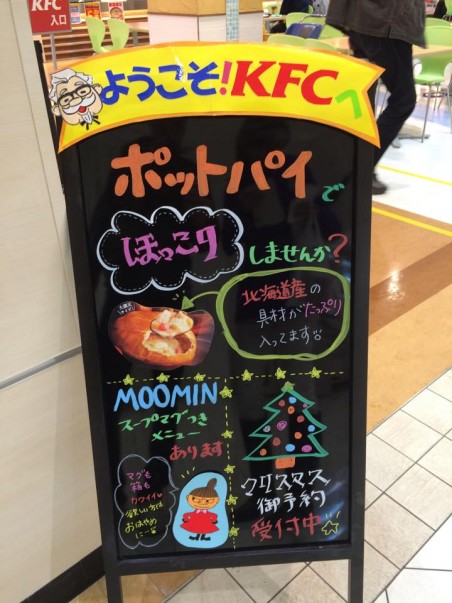 KFC
入口
ようこそ!KFCへ
ポットパイで
ほっこり
しませんか?
北海道産の
具材がたっぷり
入ってます
MOOMIN
スープマグつき
メニュー
あります
マグも
箱も
カワイイ
欲しい方は
おはやめ
にー
クリスマス
御予約
受付中